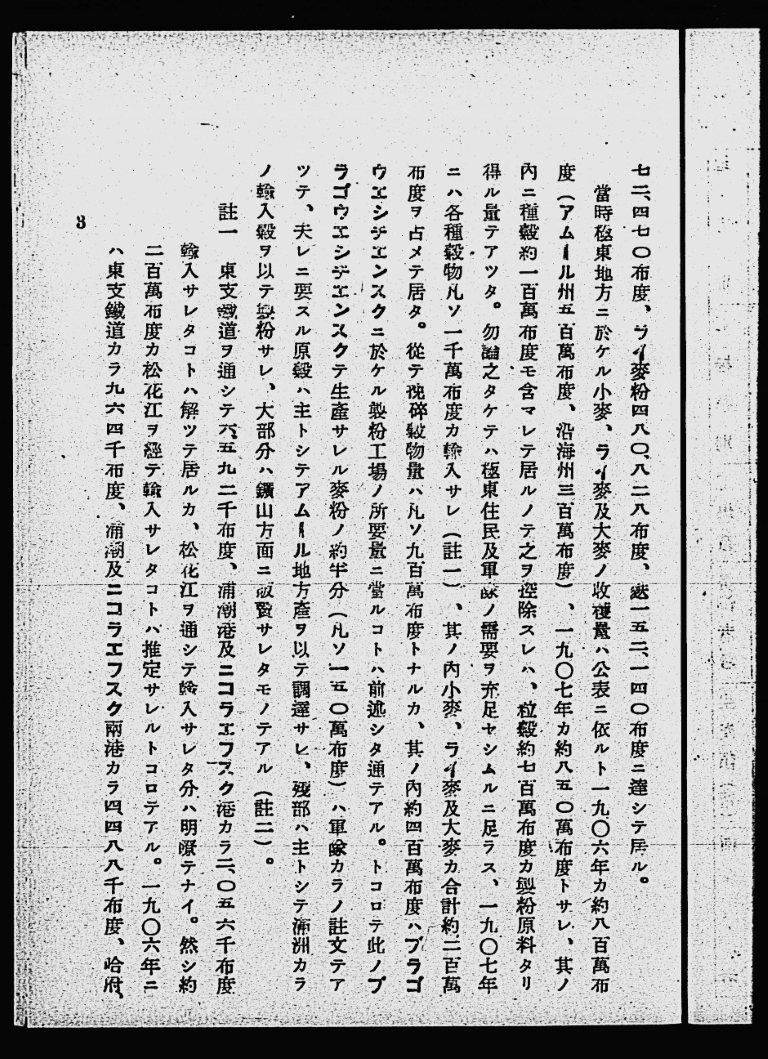 七二、四七〇布度、ライ麥粉四八〇、八二八布度、麩一五二、一四〇布度ニ達シテ居ル。
當時極東地方ニ於ケル小麥、ライ麥及大麥ノ收穫量ハ公表ニ依ルト一九〇六年カ約八百萬布
度（アムール州五百萬布度、沿海州三百萬布度）、一九〇七年カ約八五〇萬布度トサレ、其ノ
內ニ種穀約一百萬布度モ含マレテ居ルノテ之ヲ控除スレハ、粒穀約七百萬布度カ製粉原料タリ
得ル量テアツタ。勿論之タケテハ極東住民及軍隊ノ需要ヲ充足セシムルニ足ラス、一九〇七年
ニハ各種穀物凡ソ一千萬布度カ輸入サレ（註一）、其ノ內小麥、ライ麥及大麥カ合計約二百萬
布度ヲ占メテ居タ。從テ挽碎穀物量ハ凡ソ九百萬布度トナルカ、其ノ內約四百萬布度ハブラゴ
ウエシチエンスクニ於ケル製粉工場ノ所要量ニ當ルコトハ前述シタ通テアル。トコロテ此ノブ
ラゴウエシチエンスクテ生產サレル麥粉ノ約半分（凡ソ一五〇萬布度）ハ軍隊カラノ註文テア
ツテ、夫レニ要スル原穀ハ主トシテアムール地方產ヲ以テ調達サレ、殘部ハ主トシテ滿洲カラ
ノ輸入穀ヲ以テ製粉サレ、大部分ハ鑛山方面ニ販賣サレタモノテアル（註二）。
註一　東支鐵道ヲ通シテ六、五九二千布度、浦潮港及ニコラエフスク港カラ二、〇五六千布度
輸入サレタコトハ解ツテ居ルカ、松花江ヲ通シテ輸入サレタ分ハ明瞭テナイ。然シ約
二百萬布度カ松花江ヲ經テ輸入サレタコトハ推定サレルトコロテアル。一九〇六年ニ
ハ東支鐵道カラ九六四千布度、浦潮及ニコラエフスク兩港カラ四、四八八千布度、哈府、
3